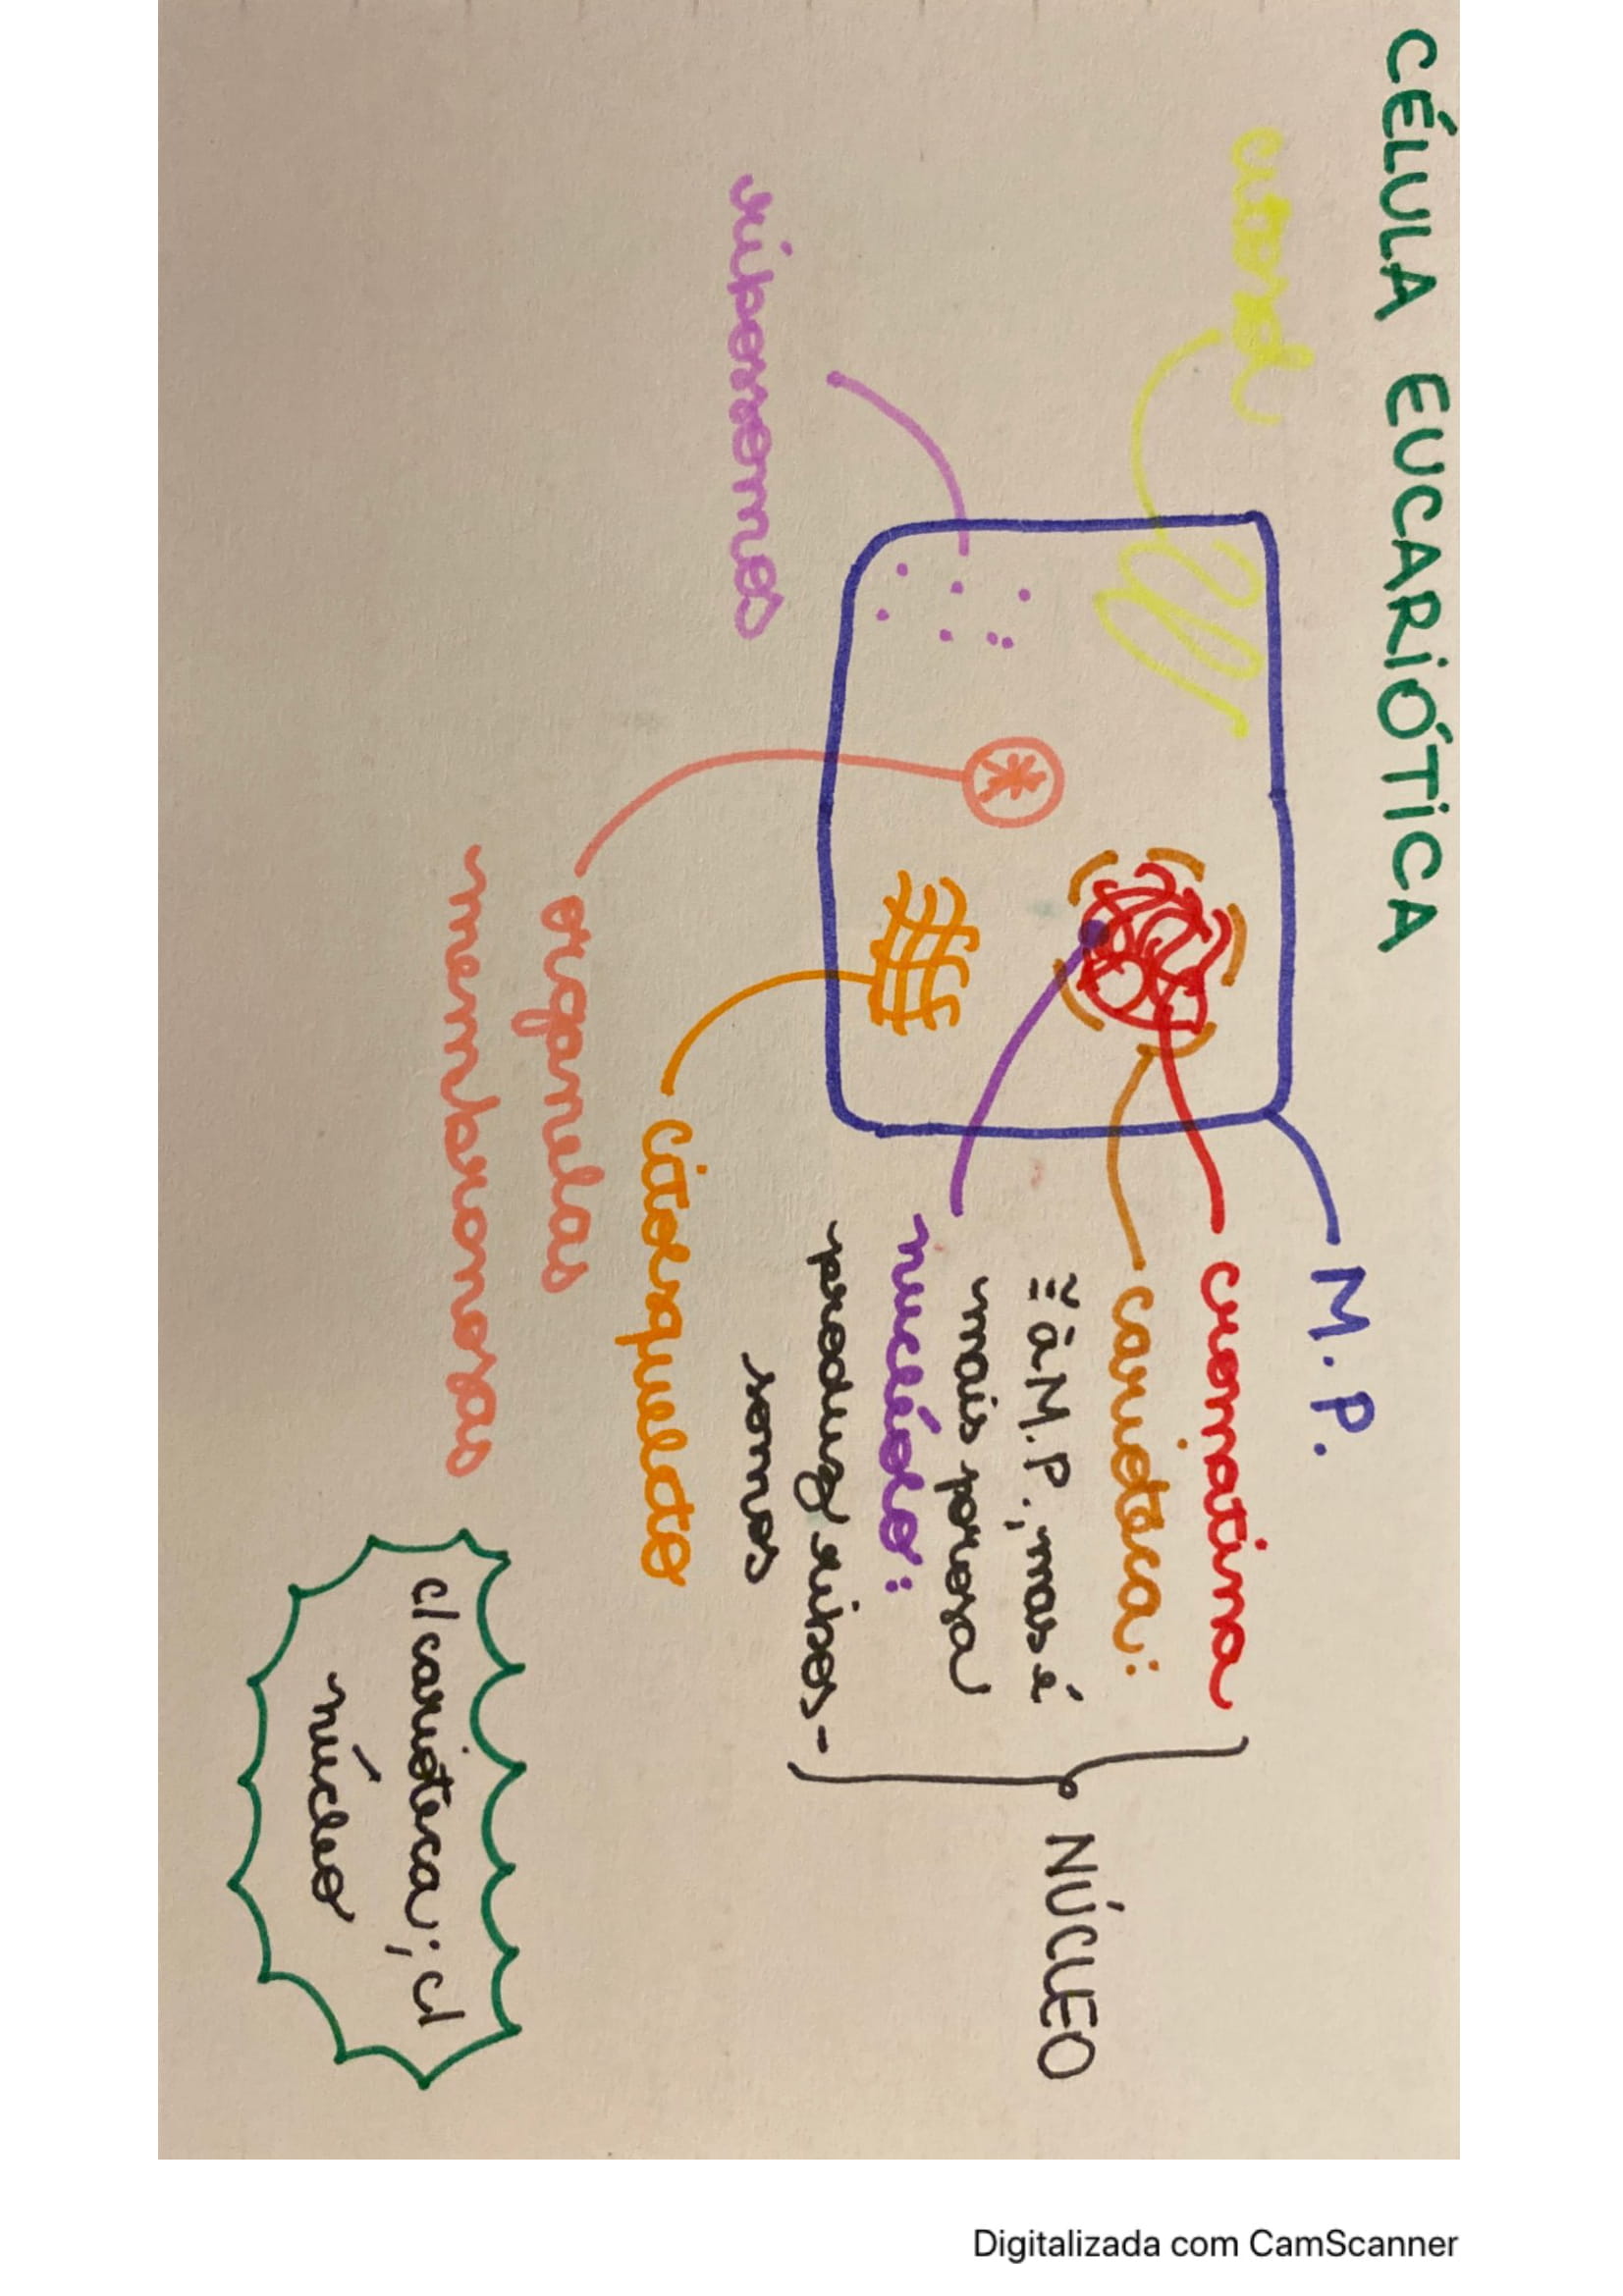 CÉLULA EUCARIÓTICA
citosol
ribossomos
M.P.
cromatina
carioteca:
≅ à M.P., mas é
mais porosa
nucléolo:
produz ribos-
somos
NÚCLEO
citoesqueleto
organelas
membranosas
c/ carioteca; c/
núcleo
Digitalizada com CamScanner